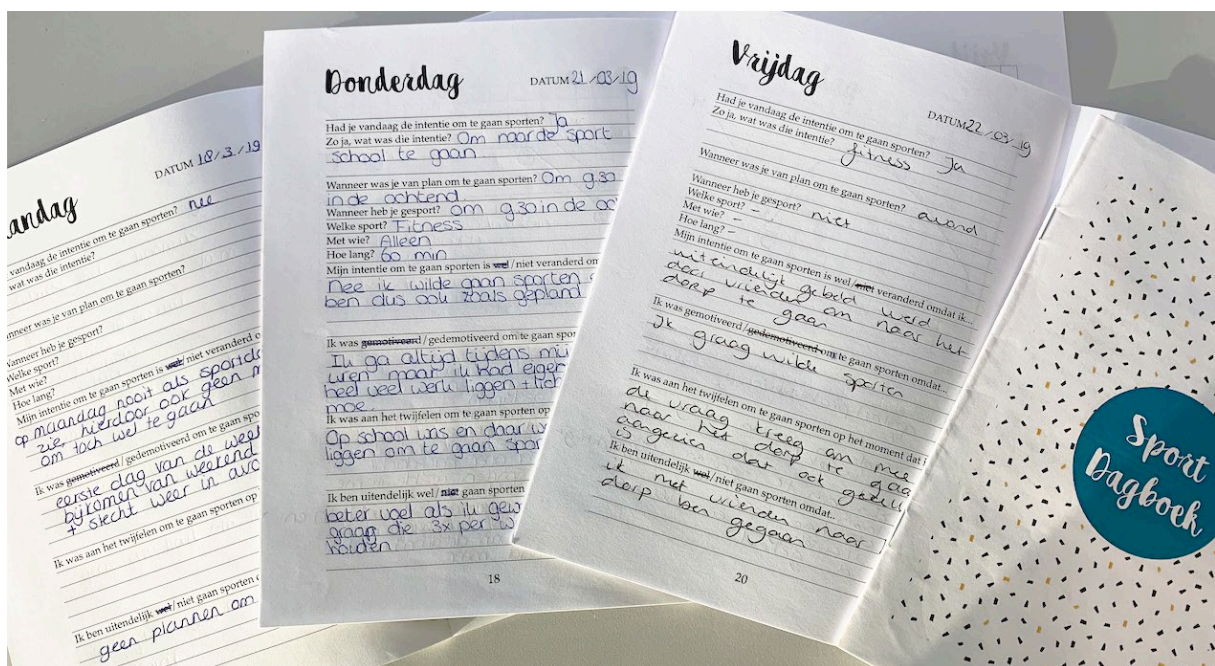 andag
DATUM 18/3/19
vandaag de intentie om te gaan sporten? nee
wat was die intentie?
anneer was je van plan om te gaan sporten?
Wanneer heb je gesport?
Welke sport?
Met wie?
Hoe lang?
Mijn intentie om te gaan sporten is wel/niet veranderd o
op maandag nooit als sportda
zie, hierdoor ook geen m
om toch wel te gaan
Ik was gemotiveerd/gedemotiveerd om te gaan spo
eerste dag van de week
bijkomen van weekend
+ slecht weer in avo
Ik was aan het twijfelen om te gaan sporten op
Ik ben uitendelijk wel/niet gaan sporten o
geen plannen om
Donderdag
DATUM 21/03/19
Had je vandaag de intentie om te gaan sporten? Ja
Zo ja, wat was die intentie? Om naar de sport
school te gaan
Wanneer was je van plan om te gaan sporten? Om 9.30
in de ochtend
Wanneer heb je gesport? Om 9.30 in de oc
Welke sport? Fitness
Met wie? Alleen
Hoe lang? 60 min
Mijn intentie om te gaan sporten is wel/niet veranderd om
Nee ik wilde gaan sporten
ben dus ook zoals gepland
Ik was gemotiveerd/gedemotiveerd om te gaan spor
Ik ga altijd tijdens
uren maar ik had eigen
heel veel werk liggen +
moe
Ik was aan het twijfelen om te gaan sporten op
Op school was en daar
liggen om te gaan spor
Ik ben uitendelijk wel/niet gaan sporten
beter voel als ik gew
graag die 3x per w
houden
18
Vrijdag
DATUM 22/03/19
Had je vandaag de intentie om te gaan sporten? Ja
Zo ja, wat was die intentie? fitness
Wanneer was je van plan om te gaan sporten? avond
Wanneer heb je gesport? niet
Welke sport? -
Met wie? -
Hoe lang? -
Mijn intentie om te gaan sporten is wel/niet veranderd omdat ik...
uiteindelijk gebeld werd
door vrienden om naar het
dorp te gaan
Ik was gemotiveerd/gedemotiveerd om te gaan sporten omdat
Ik graag wilde sporten
Ik was aan het twijfelen om te gaan sporten op het moment dat
de vraag kreeg om mee
naar het dorp te gaa
aangezien dat ook gezellig
is
Ik ben uitendelijk wel/niet gaan sporten omdat...
ik met vrienden naar
dorp ben gegaan
20
Sport
Dagboek